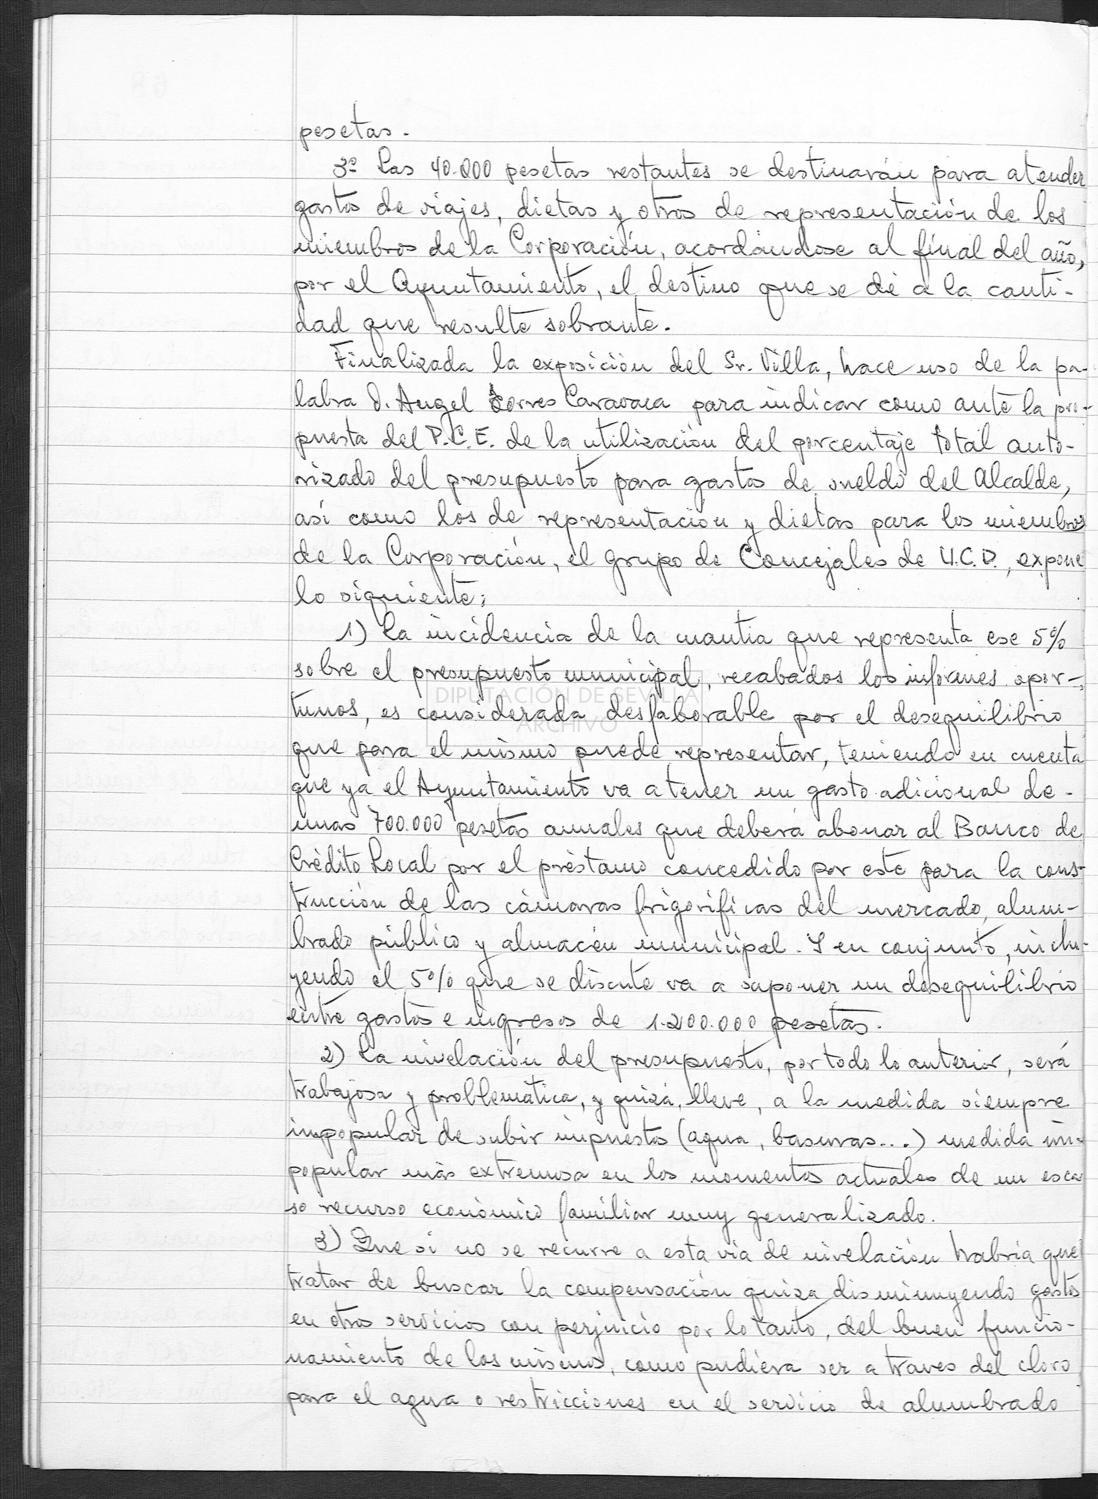 pesetas.
3º Las 40.000 pesetas restantes se destinarán para atender
gastos de viajes, dietas y otros de representación de los
miembros de la Corporación, acordándose al final del año,
por el Ayuntamiento, el destino que se dé a la canti-
dad que resulte sobrante.
Finalizada la exposición del Sr. Villa, hace uso de la pa-
labra D. Angel Torres Caravaca para indicar como ante la pro-
puesta del P.C.E. de la utilización del porcentaje total auto-
rizado del presupuesto para gastos de sueldo del Alcalde,
así como los de representación y dietas para los miembros
de la Corporación, el grupo de Concejales de U.C.D., expone
lo siguiente:
1) La incidencia de la cuantia que representa ese 5%
sobre el presupuesto municipal, recabados los informes opor-
tunos, es considerada desfaborable por el desequilibrio
DIPUTACIÓN DE SEVILLA
ARCHIVO
que para el mismo puede representar, teniendo en cuenta
que ya el Ayuntamiento va a tener un gasto adicional de-
unas 700.000 pesetas anuales que deberá abonar al Banco de
Crédito Local por el préstamo concedido por este para la cons-
trucción de las cámaras frigoríficas del mercado, alum-
brado público y almacén municipal. Y en conjunto, inclu-
yendo el 5% que se discute va a suponer un desequilibrio
entre gastos e ingresos de 1.200.000 pesetas.
2) La nivelación del presupuesto, por todo lo anterior, será
trabajosa y problemática, y quizá, lleve, a la medida siempre
impopular de subir impuestos (agua, basuras...) medida im-
popular más extremosa en los momentos actuales de un esca
so recurso económico familiar muy generalizado.
3) Que si no se recurre a esta via de nivelación habría que
tratar de buscar la compensación quiza disminuyendo gastos
en otros servicios con perjuicio por lo tanto, del buen funcio-
namiento de los mismos, como pudiera ser a traves del cloro
para el agua o restricciones en el servicio de alumbrado